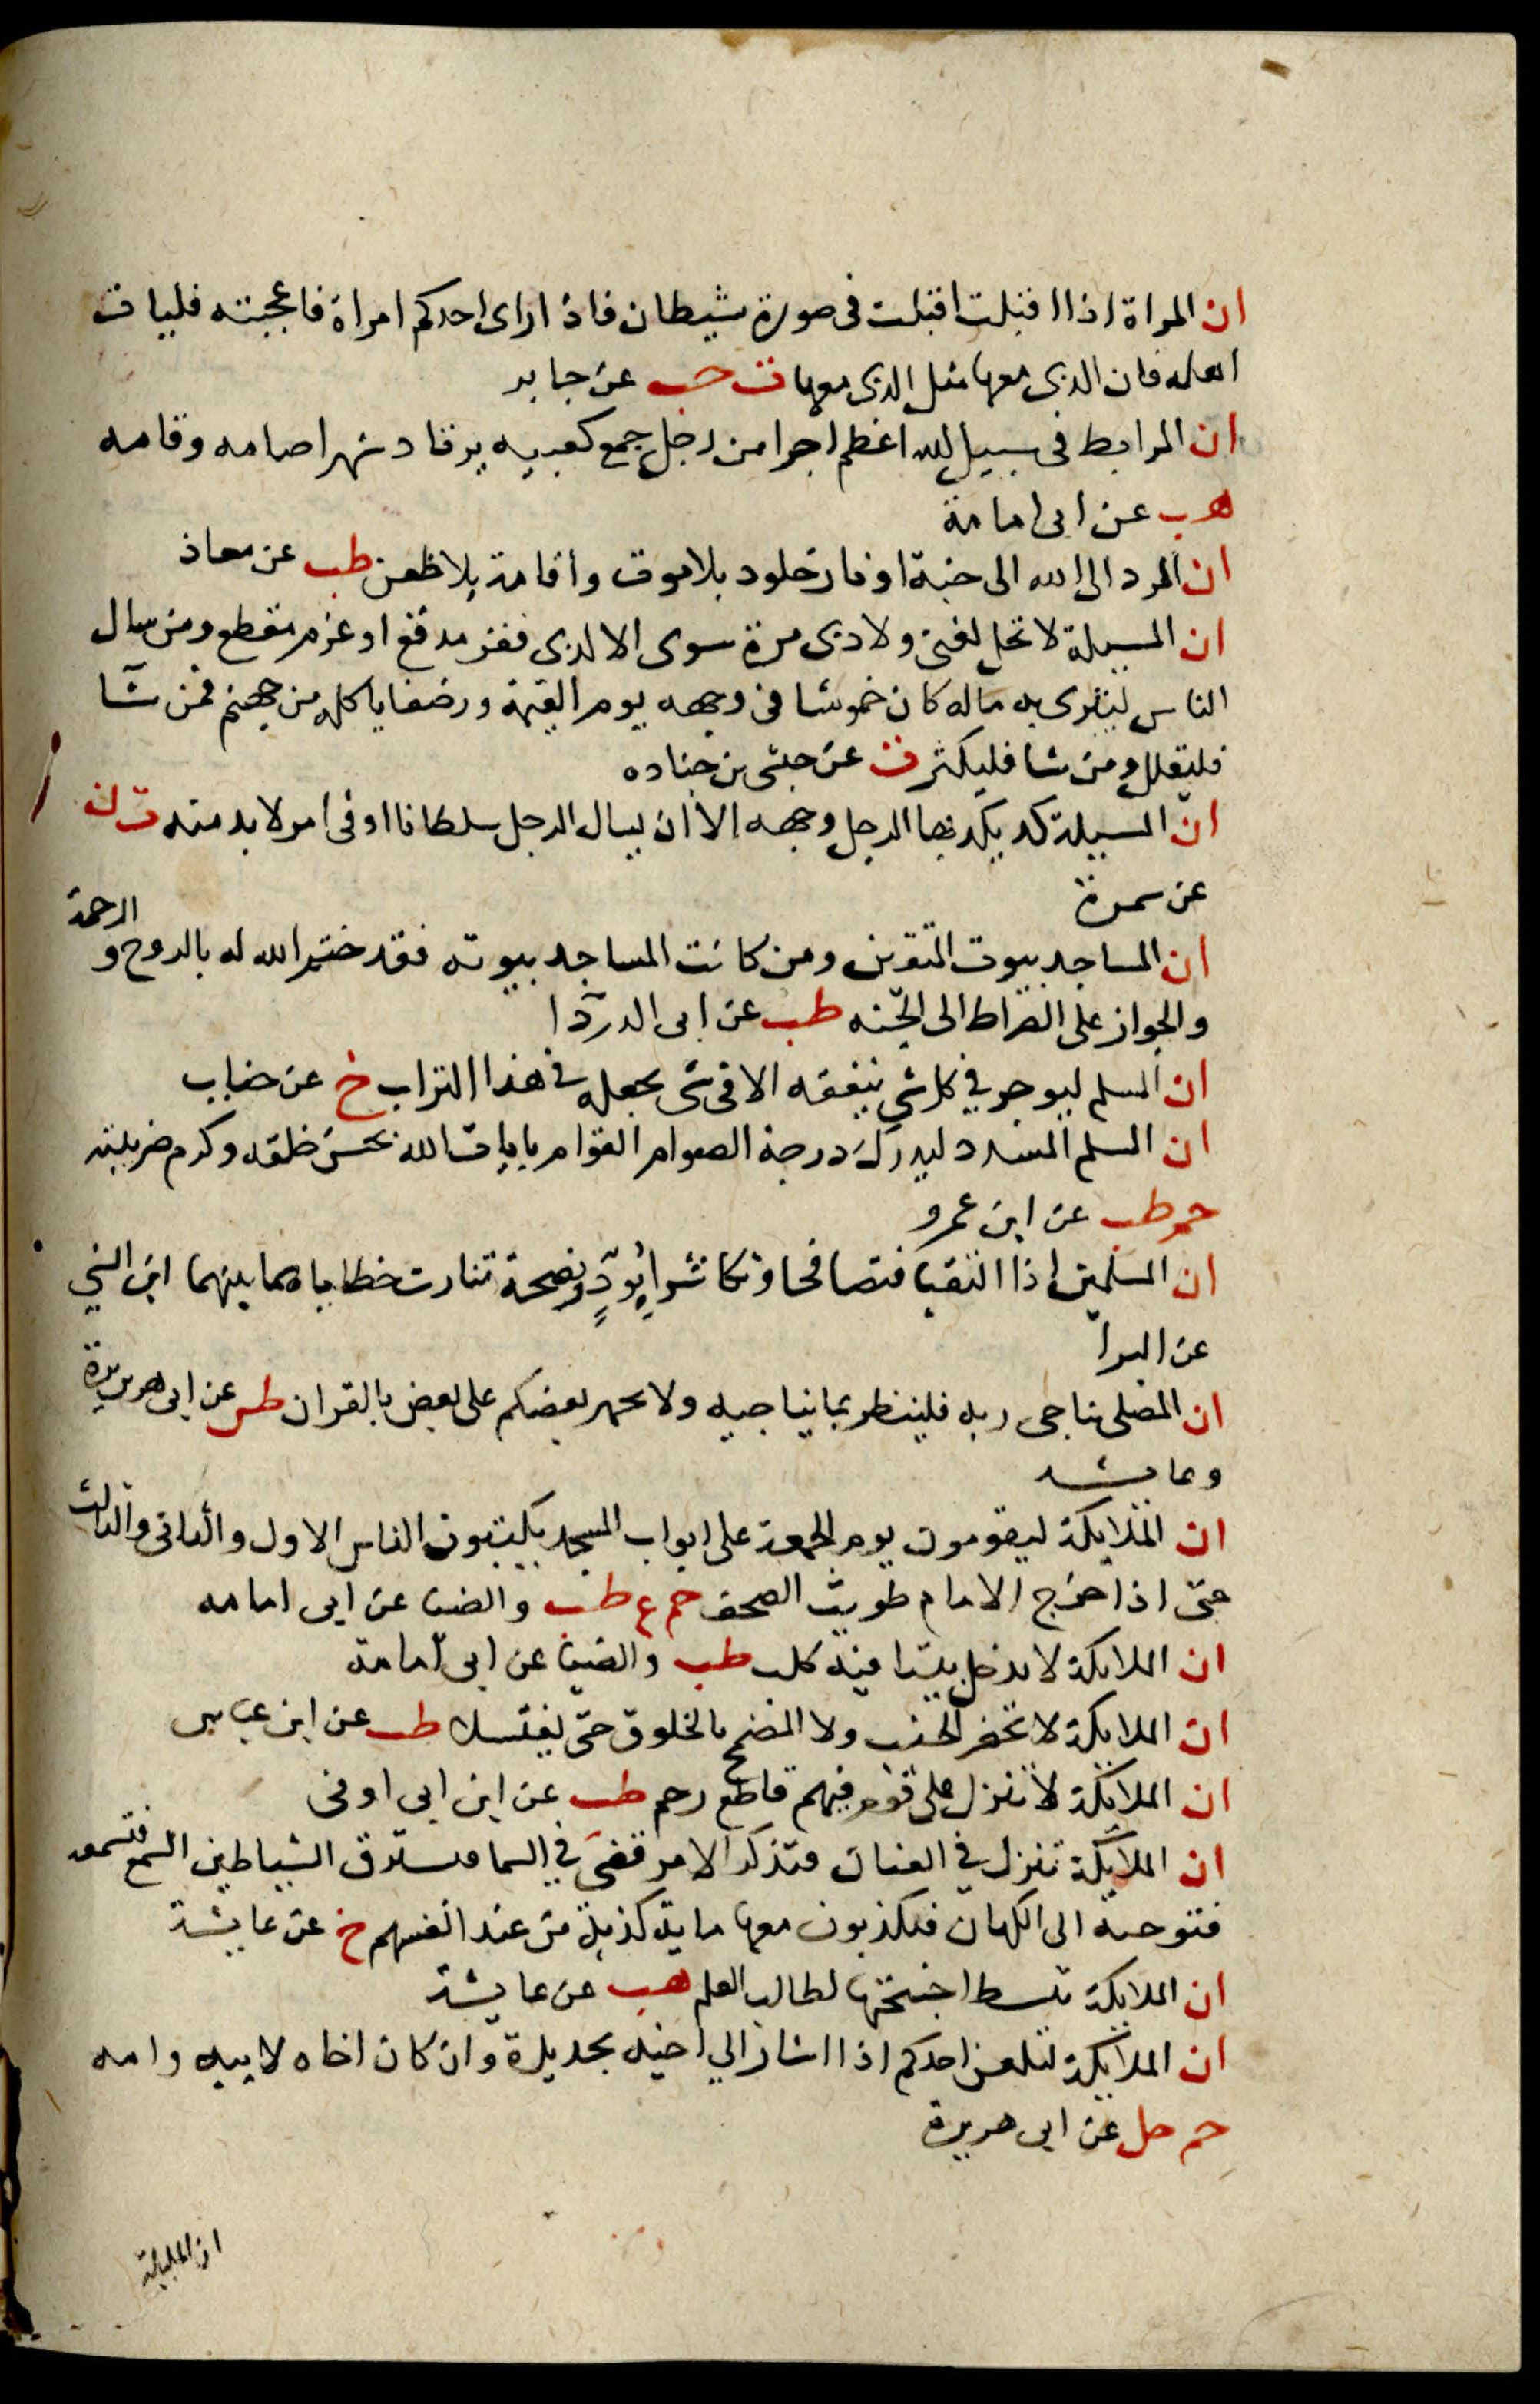 ان المراة اذا اقبلت اقبلت فى صورة شيطان فاذا راى احدكم امراة فاعجبته فليات
اهله فان الذى معها مثل الذى معها ت حب عن جابر
ان المرابط فى سبيل الله اعظم اجرا من رجل جمع كعبيه برقاد شهرا صامه وقامه
هب عن ابى امامة
ان المرد الى الله الى جنة او نار خلود بلا موت واقامة بلا ظعن طب عن معاذ
ان المسيلة لا تحل لغنى ولا ذى مرة سوى الا لذى فقر مدقع او غرم مقطع ومن سال
الناس ليثرى به ماله كان خموشا فى وجهه يوم القيمة ورضفا ياكله من جهنم فمن شآ
فليقلل ومن شا فليكثر ت عن حبشى بن جناده
ان المسيلة كد يكد بها الرجل وجهه الا ان يسال الرجل سلطانا او فى امر لا بد منه ت ن
عن سمرة
ان المساجد بيوت المتقين ومن كانت المساجد بيوته فقد ختم الله له بالروح و الرحمة
والجواز على الصراط الى الجنه طب عن ابى الدردآ
ان المسلم ليوجر في كل شي ينفقه الا فى شى يجعله في هذا التراب خ عن خباب
ان المسلم المسدد ليدرك درجة الصوام القوام بايات الله بحسن خلقه وكرم ضريبته
حم طب عن ابن عمرو
ان المسلمين اذا التقيا فتصافحا وتكاشرا بودٍ ونصيحة تناثرت خطاياهما بينهما ابن السني
عن البرآ
ان المصلى يناجى ربه فلينظر بما يناجيه ولا يجهر بعضكم على بعض بالقران طس عن ابى هريرة
وعايشه
ان الملايكة ليقومون يوم الجمعة على ابواب المسجد يكتبون الناس الاول والثانى والثالث
حتى اذا خرج الامام طويت الصحف حم ع طب والضيا عن ابى امامه
ان الملايكة لا تدخل بيتا فيه كلب طب والضيا عن ابى امامة
ان الملايكة لا تحضر الجنب ولا المضمخ بالخلوق حتى يغتسلا طب عن ابن عباس
ان الملايكة لا تنزل على قوم فيهم قاطع رحم طب عن ابن ابى اوفى
ان الملايكة تنزل في العنان فتذكر الامر قضى في السما فتسترق الشياطين السمع فتسمعه
فتوحيه الى الكهان فيكذبون معها ماية كذبة من عند انفسهم خ عن عايشة
ان الملايكة تبسط اجنحتها لطالب العلم هب عن عايشة
ان الملايكة لتلعن احدكم اذا اشار الي اخيه بحديدة وان كان اخاه لابيه وامه
حم حل عن ابى هريرة